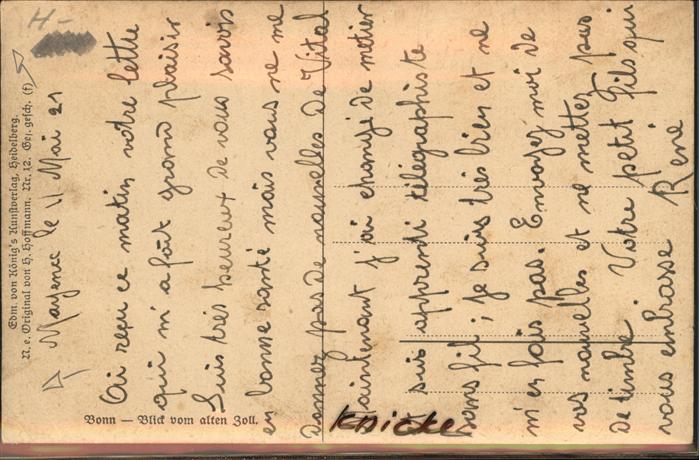 Mayence le 11 Mai 21
Ai reçu ce matin vôtre lettre
qui m'a fait grand plaisir
Suis très heureux de vous savoir
en bonne santé mais vous ne me
donnez pas de nouvelles de Vital
Maintenant j'ai changé de métier
suis apprenti télégraphiste
sans fil; Je suis très bien et ne
m'en fais pas. Envoyez moi de
vos nouvelles et ne mettez pas
de timbre. Votre petit Fils qui
vous embrasse René
Bonn — Blick vom alten Zoll.
Edm. von König's Kunstverlag, Heidelberg.
N. e. Original von H. Hoffmann. Nr. 12. Ges. gesch. (f)
Knicke
H-